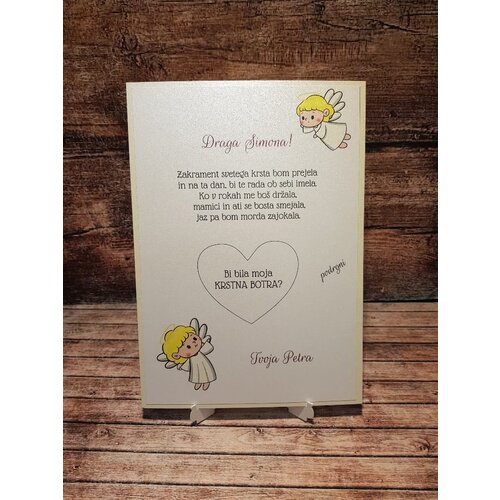 Draga Simona!
Zakrament svetega krsta bom prejela
in na ta dan, bi te rada ob sebi imela.
Ko v rokah me boš držala,
mamici in ati se bosta smejala,
jaz pa bom morda zajokala.
Bi bila moja
KRSTNA BOTRA?
podrgni
Tvoja Petra